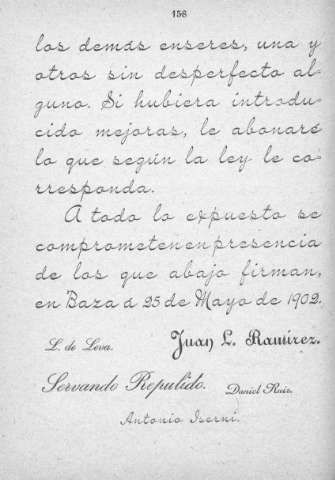 158
los demás enseres, una y
otros sin desperfecto al
guno. Si hubiera introdu
cido mejoras, le abonaré
lo que según la ley le co
rresponda.
A todo lo expuesto se
comprometen en presencia
de los que abajo firman,
en Baza d 25 de Mayo de 1902.
L. de Leva. Juan L. Ramírez.
Servando Repulido. Daniel Ruiz.
Antonio Iserni.